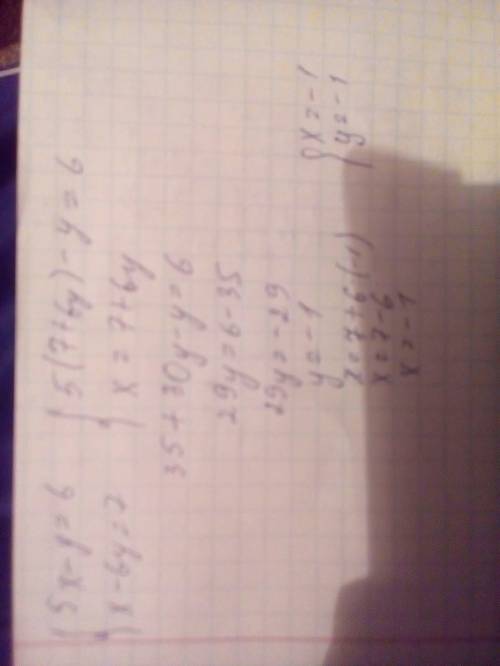 {5x-y=6
{x-6y=7
{5(7+6y)-y=6
{x=7+6y
35+30y-y=6
29y=6-35
29y=-29
y=-1
x=7+6(-1)
x=7-6
x=-1
{x=-1
{y=-1